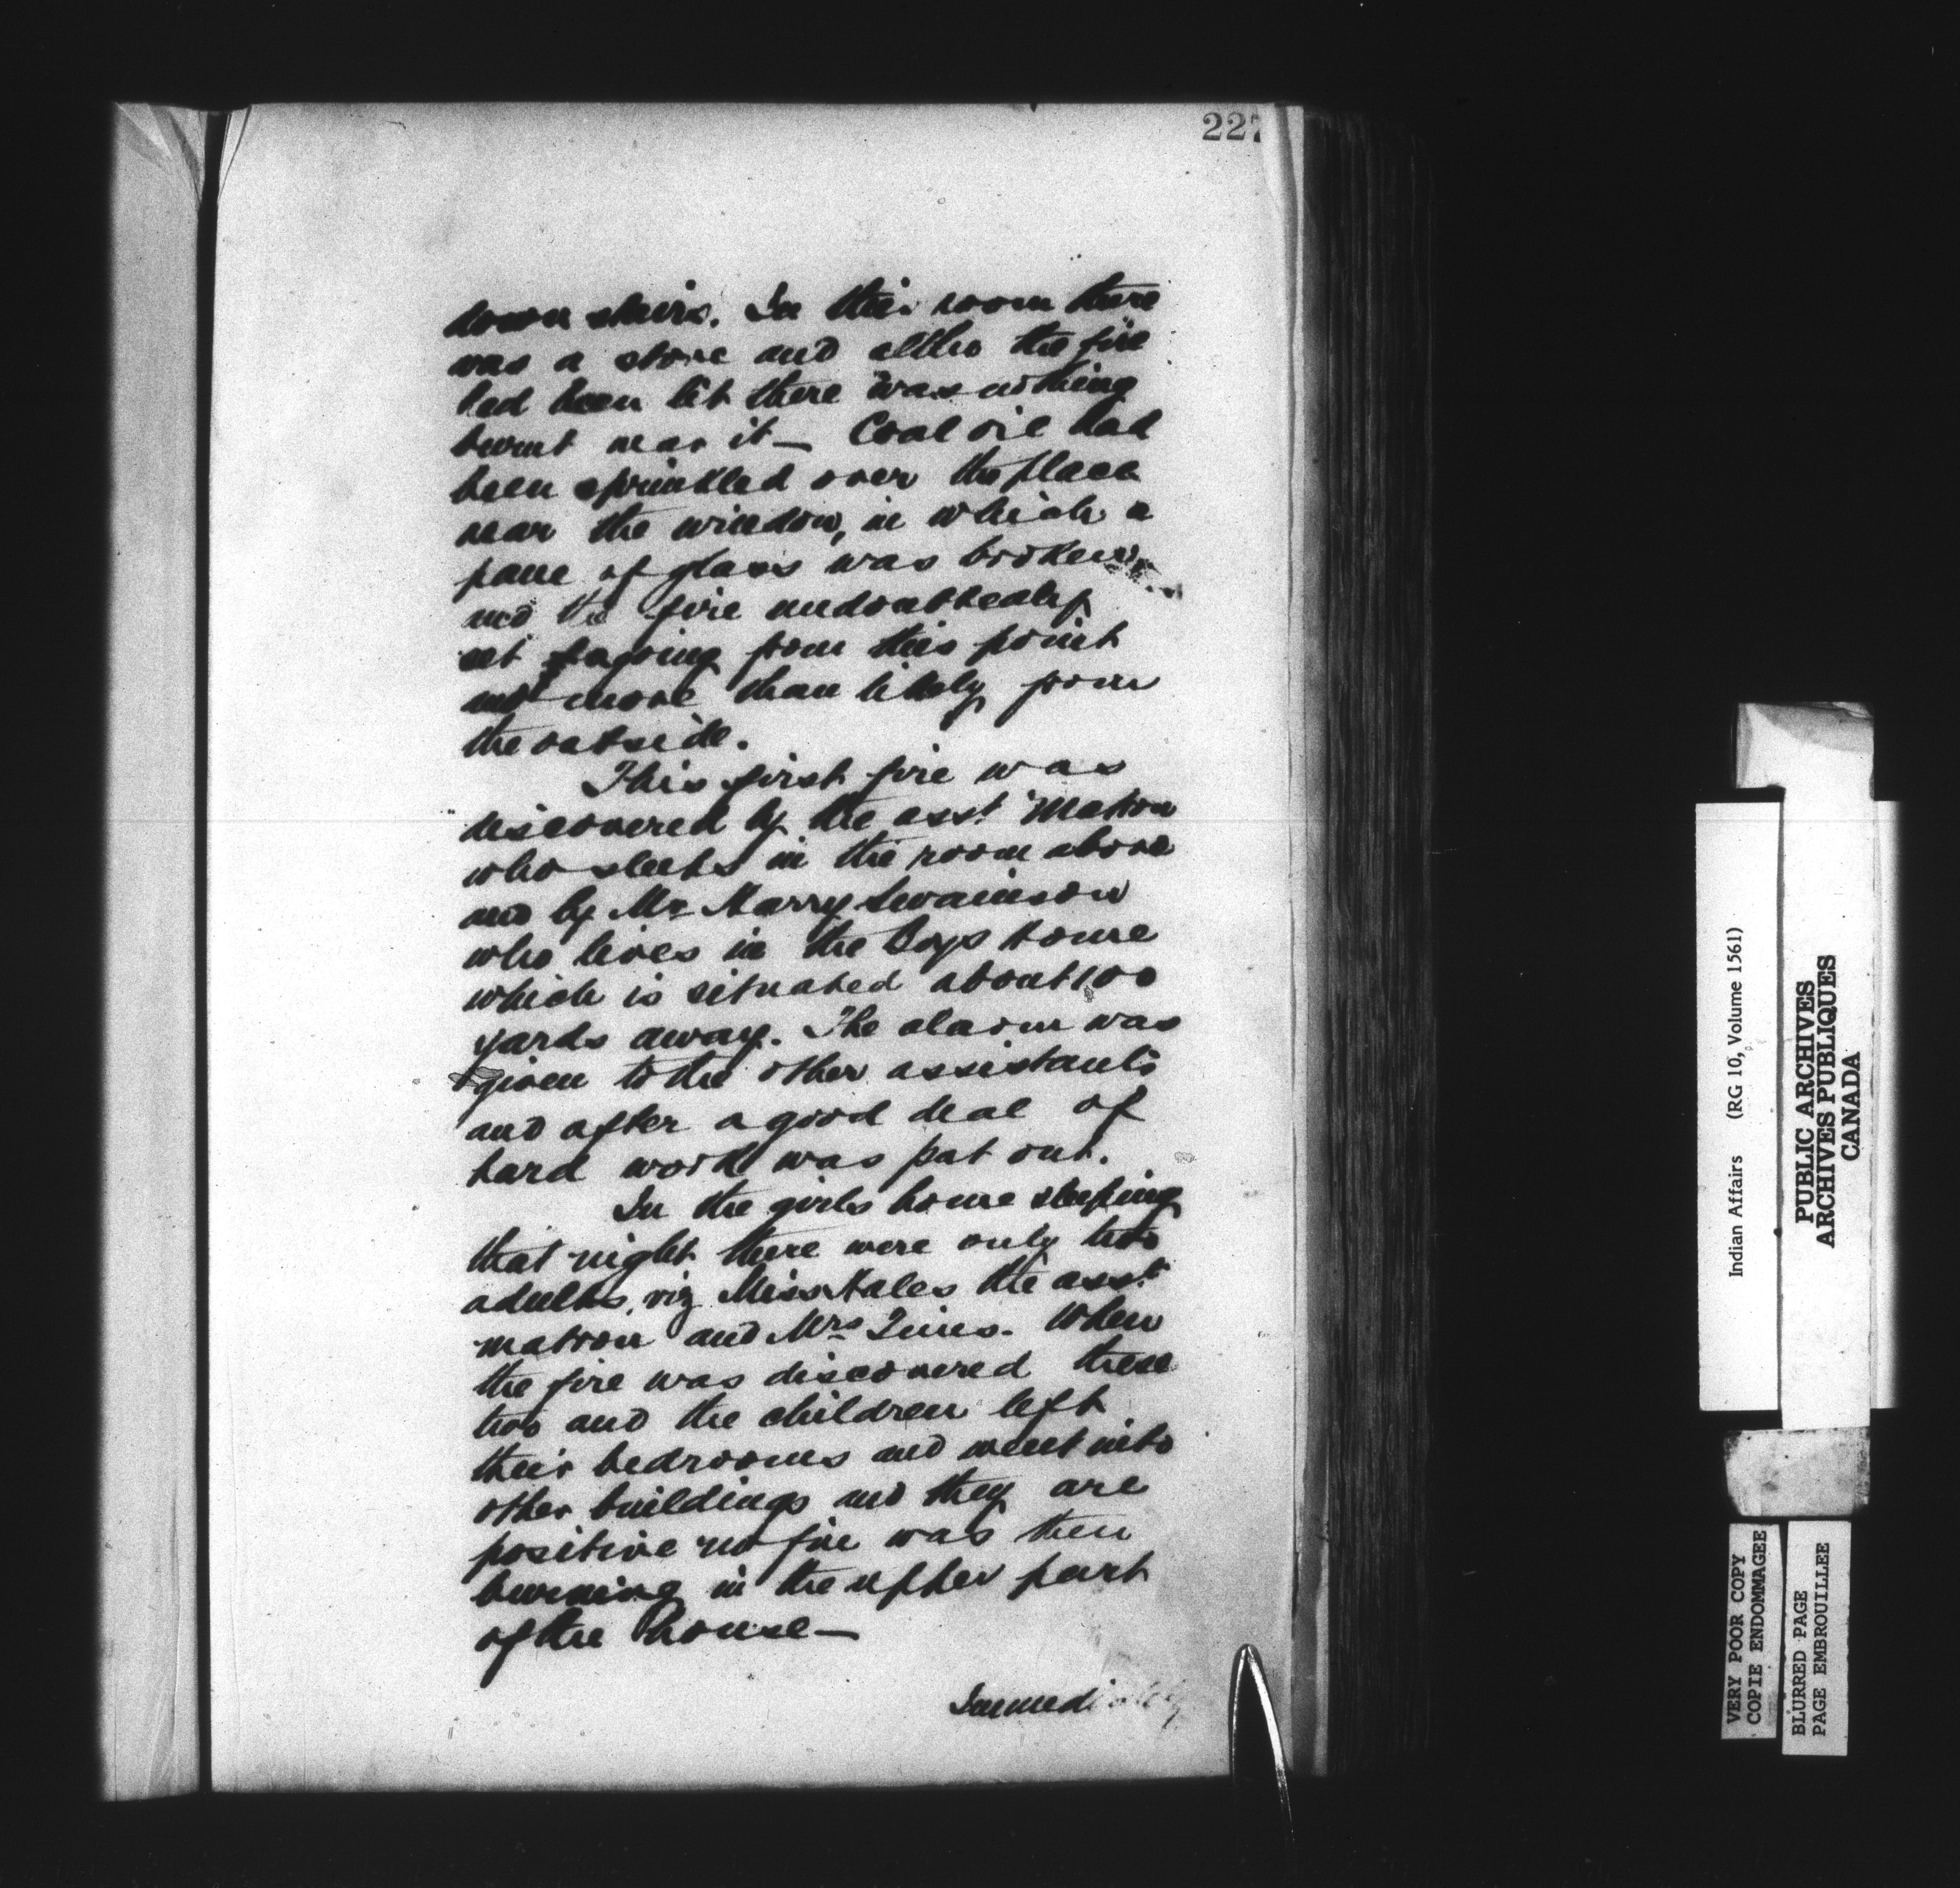 227
down stairs. In this room there
was a stove and altho the fire
had been lit there was nothing
burnt near it — Coal oil had
been sprinkled over the place
near the window, in which a
pane of glass was broken
and the fire undoubtedly
set going from this point
and more than likely from
the outside.
This first fire was
discovered by the asst Matron
who sleeps in the room above
and by Mr Harry Swainson
who lives in the Boys home
which is situated about 100
yards away. The alarm was
given to the other assistants
and after a good deal of
hard work was put out.
In the girls home sleeping
that night there were only two
adults, viz Miss Hales the asst
matron and Mrs
When
the fire was discovered these
two and the children left
their bedrooms and went into
other buildings and they are
positive no fire was then
burning in the upper part
of the house —
Immediately
Indian Affairs (RG 10, Volume 1561)
PUBLIC ARCHIVES
ARCHIVES PUBLIQUES
CANADA
VERY POOR COPY
COPIE ENDOMMAGEE
BLURRED PAGE
PAGE EMBROUILLEE